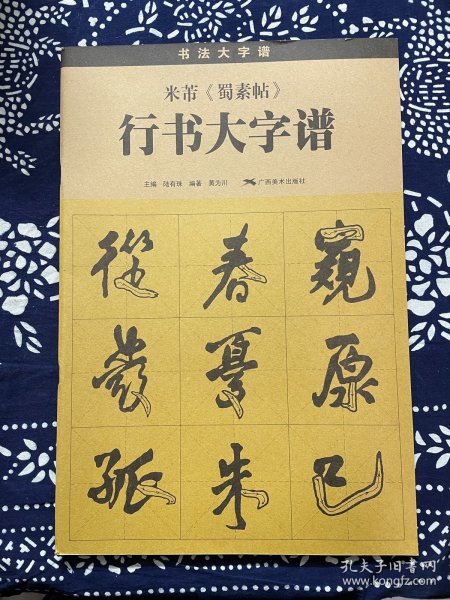 书法大字谱
米芾《蜀素帖》
行书大字谱
主编 陆有珠 编著 黄为川 广西美术出版社
從 春 窺
發 憂 原
孤 朱 己
孔夫子旧书网
www.kongfz.com